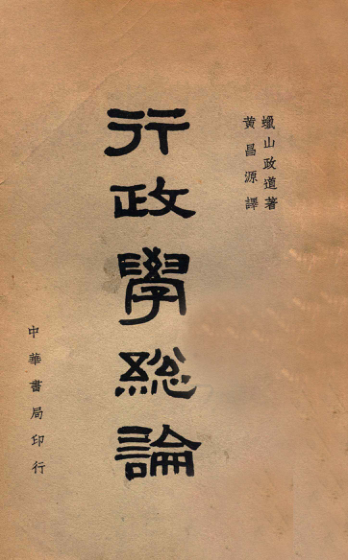 蠟山政道著
黃昌源譯
行政學総論
中華書局印行